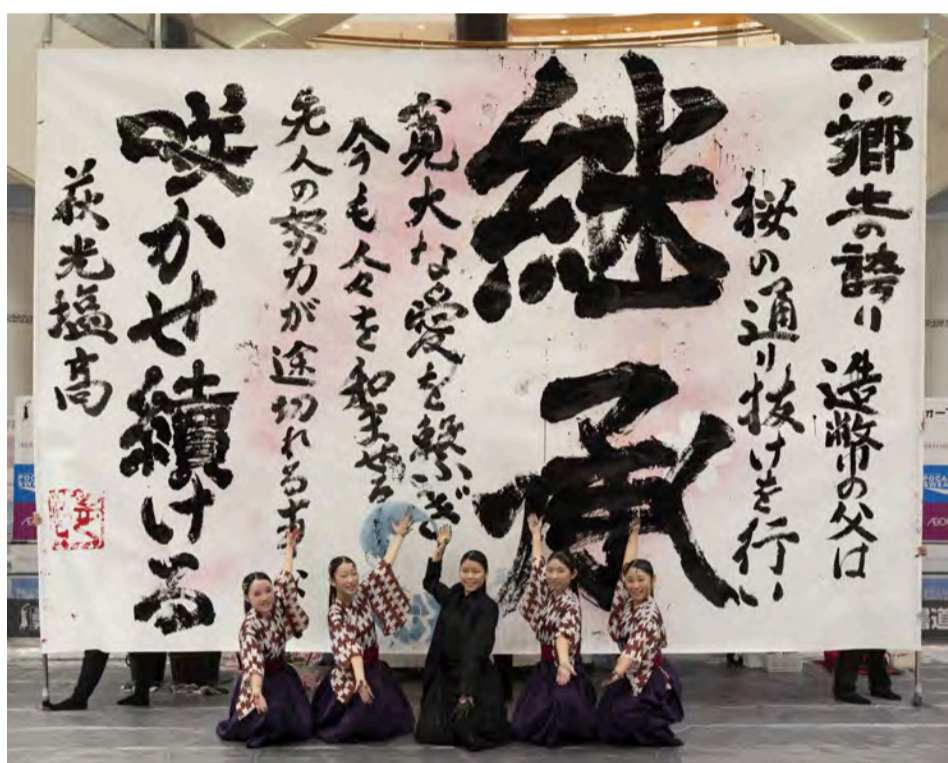 郷土の誇り 造幣の父は
桜の通り抜けを行い
継承
寛大な愛を繋ぎ
今も人々を和ませる
先人の努力が途切れる
咲かせ續ける
萩光塩高